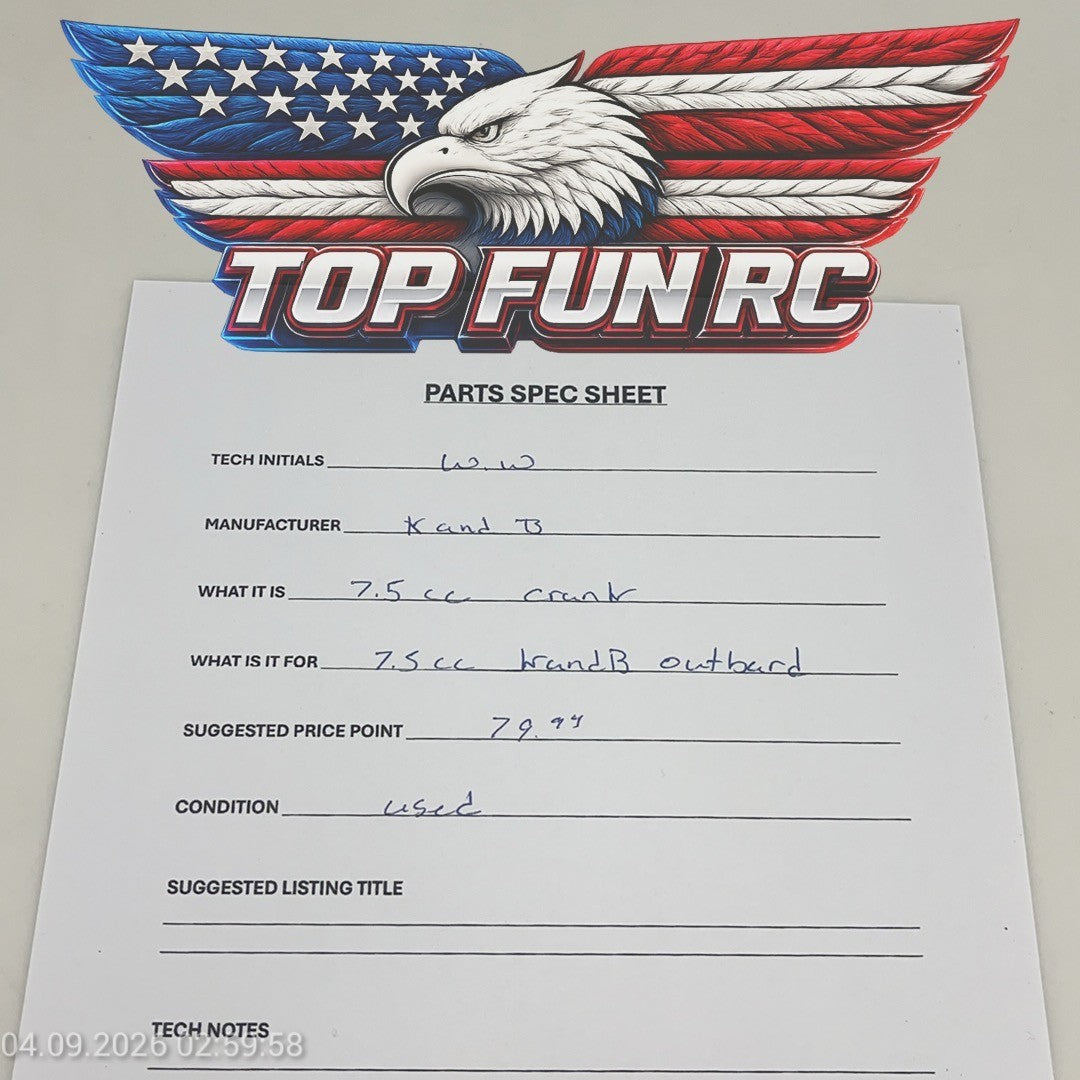 TOP FUN RC
PARTS SPEC SHEET
TECH INITIALS W.W
MANUFACTURER K and B
WHAT IT IS 7.5 cc crank
WHAT IS IT FOR 7.5 cc KandB outbard
SUGGESTED PRICE POINT 79.99
CONDITION used
SUGGESTED LISTING TITLE
TECH NOTES
04.09.2026 02:59:58